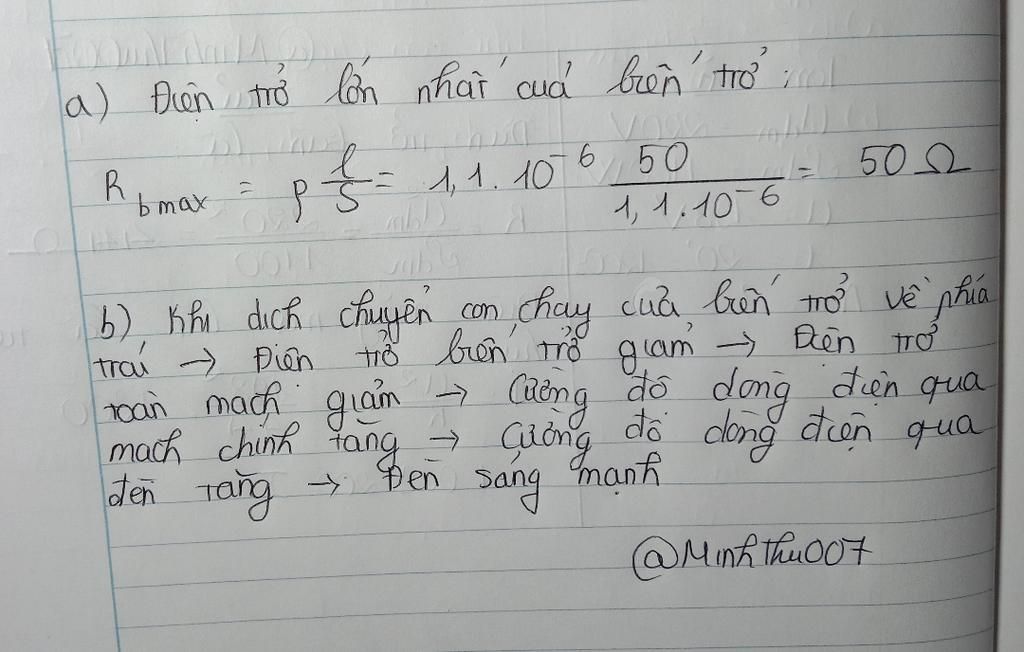 a) Điện trở lớn nhất cuả biến trở:
R b max = ρ l/S = 1,1.10⁻⁶ 50/1,1.10⁻⁶ = 50 Ω
b) Khi dịch chuyển con chạy cuả biến trở về phía
trái → Điện trở biến trở giảm → Điện trở
toàn mạch giảm → Cường độ dòng điện qua
mạch chính tăng → Cường độ dòng điện qua
đèn tăng → Đèn sáng mạnh
@Minhthu007